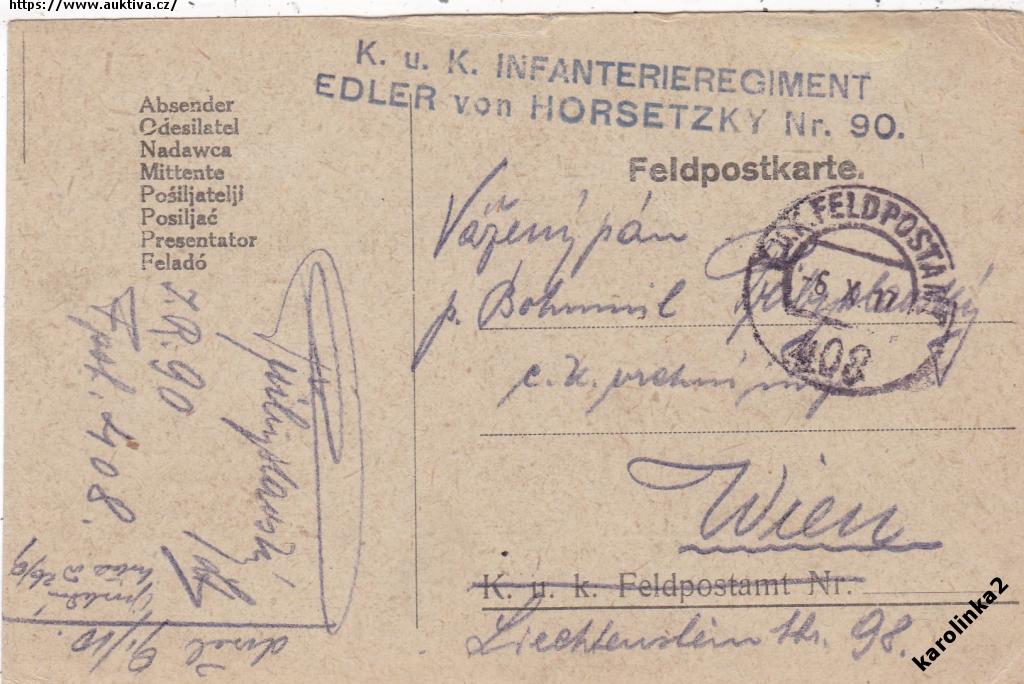 https://www.auktiva.cz/
K. u. K. INFANTERIEREGIMENT
EDLER von HORSETZKY Nr. 90.
Absender
Odesilatel
Nadawca
Mittente
Pošiljatelji
Posiljač
Presentator
Feladó
Feldpostkarte.
Vážený pán
p. Bohumil
c. k. vrchní
Wien
K. u. k. Feldpostamt Nr.
Liechtenstein str. 98.
K.U.K. FELDPOSTAMT
408
I.R. 90
408.
karolinka2